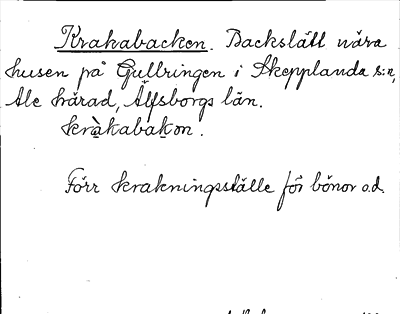 Krakabacken. Backslätt nära
husen på Gullringen i Skepplanda s:n,
Ale härad, Älfsborgs län.
kràkabakon.
Förr krakningsställe för bönor o.d.